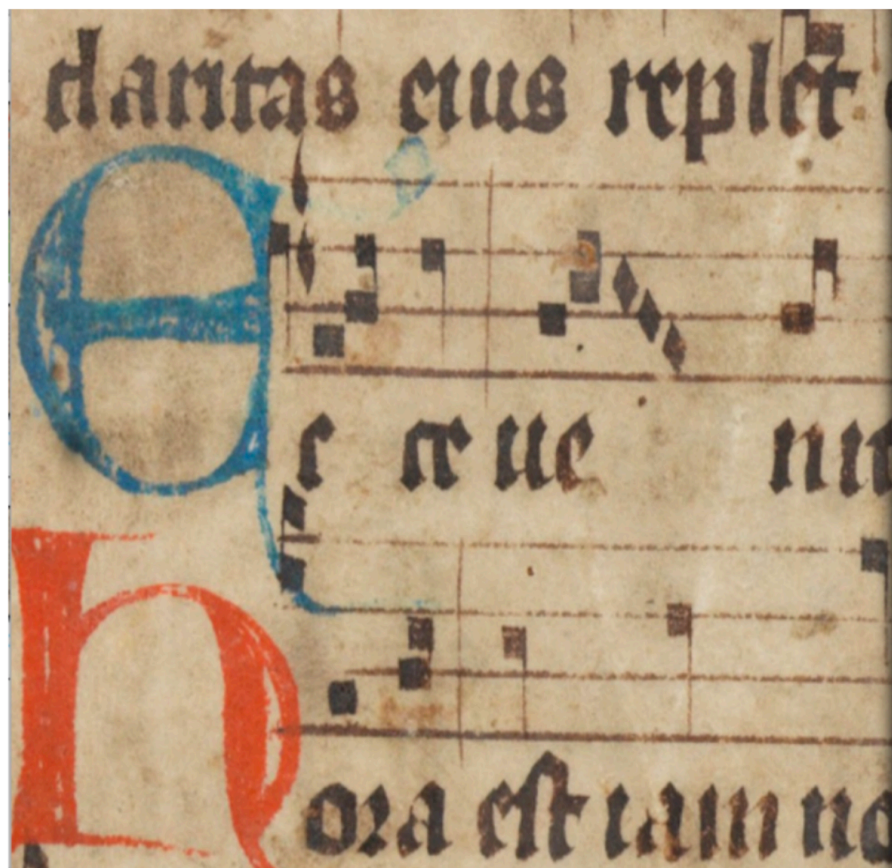 claritas eius replet
Ecce ue ni
Hora est iam no